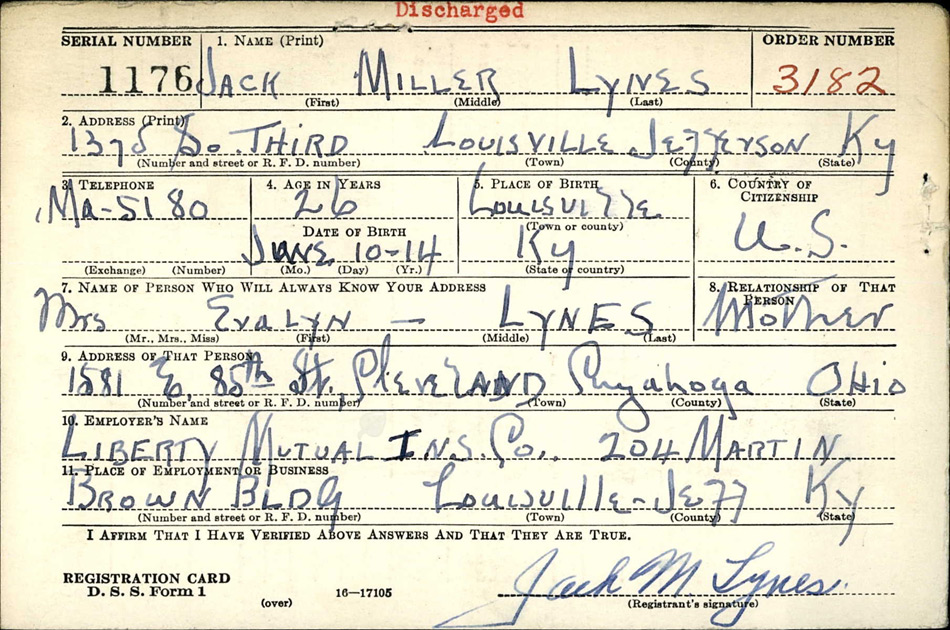 Discharged
SERIAL NUMBER 1. NAME (Print) ORDER NUMBER
1176 JACK MILLER LYNES 3182
(First) (Middle) (Last)
2. ADDRESS (Print)
So. THIRD LOUISVILLE JEFFERSON Ky
(Number and street or R. F. D. number) (Town) (County) (State)
3. TELEPHONE 4. AGE IN YEARS 5. PLACE OF BIRTH 6. COUNTRY OF CITIZENSHIP
Ma-5180 26 Louisville U.S.
DATE OF BIRTH (Town or county)
JUNE 10-14 Ky
(Exchange) (Number) (Mo.) (Day) (Yr.) (State or country)
7. NAME OF PERSON WHO WILL ALWAYS KNOW YOUR ADDRESS 8. RELATIONSHIP OF THAT PERSON
Mrs EvaLYN — LYNES Mother
(Mr., Mrs., Miss) (First) (Middle) (Last)
9. ADDRESS OF THAT PERSON
1581 E. 85th St., CleveLAND Cuyahoga OHio
(Number and street or R. F. D. number) (Town) (County) (State)
10. EMPLOYER'S NAME
LIBERTY MUTUAL INS. Co., 204 MARTIN
11. PLACE OF EMPLOYMENT OR BUSINESS
BROWN BLDG Louisville-Jeff Ky
(Number and street or R. F. D. number) (Town) (County) (State)
I AFFIRM THAT I HAVE VERIFIED ABOVE ANSWERS AND THAT THEY ARE TRUE.
REGISTRATION CARD
D. S. S. Form 1 (over) 16—17105
Jack M. Lynes.
(Registrant's signature)